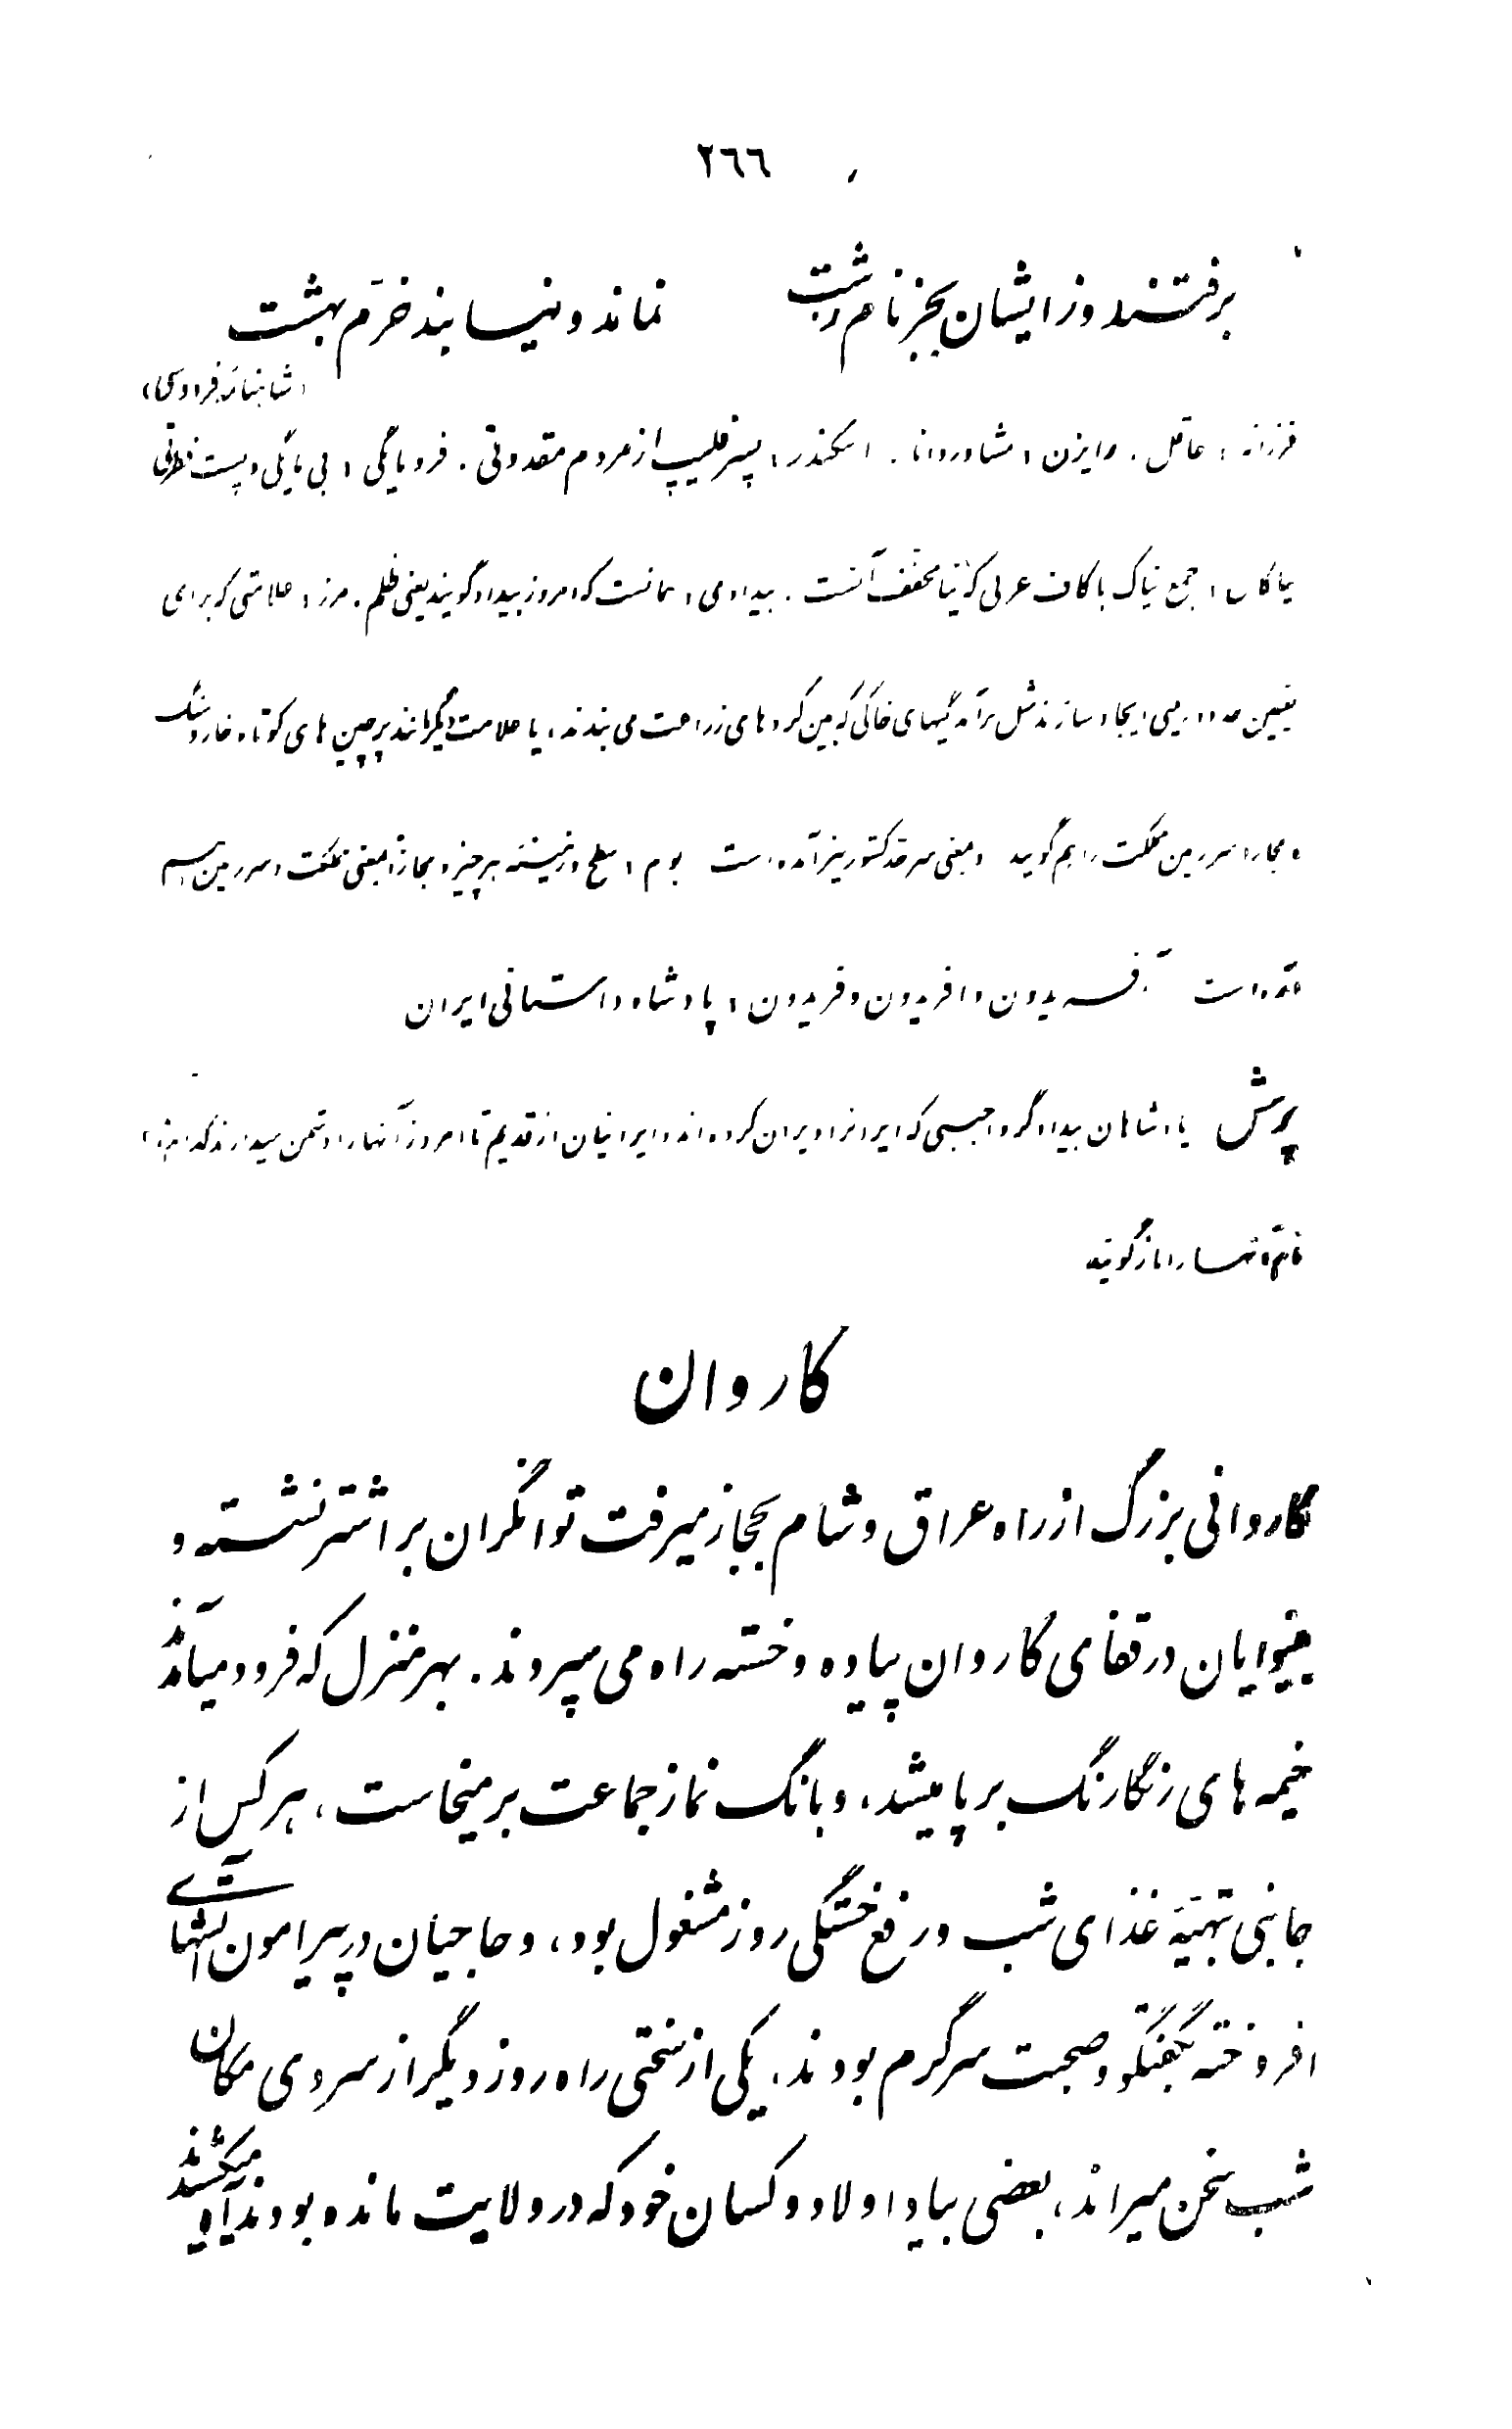 ٢٦٦
برفتند و ز ایشان بجز نام زشت نماند و نیابند خرّم بهشت
(شاهنامهٔ فردوسی)
فرزانه، عاقل. رایزن، مشاور دانا. اسکندر، پسر فلیپ از مردم مقدونی. فرومایگی، بی مایگی و پست فطرتی
نیاکان، جمع نیاک با کاف عربی که نیا مخفّف آنست. بیدادی، همانست که امروز بیداد گویند یعنی ظلم. مرز، علامتی که برای
تعیین حدود زمین ایجاد سازند مثل برآمدگیهای خاکی که بین کردهای زراعت می بندند، یا علامت دیگر مانند پرچین های کوتاه خار و سنگ
و مجازا سرزمین مملکت را هم گویند و بمعنی سرحد کشور نیز آمده است بوم، سطح و زمینهٔ هر چیز و مجازاً بمعنی مملکت و سرزمین هم
آمده است آفریدون و افریدون و فریدون، پادشاه داستانی ایران
پرسش پادشاهان بیدادگر و اجنبی که ایران را ویران کرده اند و ایرانیان از قدیم تا امروز آنها را دشمن میدارند کدامند؟
نام آنها را باز گویید
کاروان
کاروانی بزرگ از راه عراق و شام بحجاز میرفت توانگران بر اشتر نشسته و
بینوایان در قفای کاروان پیاده و خسته راه می سپردند. بهر منزل که فرود میآمدند
خیمه های رنگارنگ بر پا میشد، و بانگ نماز جماعت برمیخاست، هر کس از
جانبی بتهیّهٔ غذای شب و رفع خستگی روز مشغول بود، و حاجیان در پیرامون آتشهای
افروخته بگفتگو و صحبت سرگرم بودند. یکی از سختی راه روز و دیگر از سردی مکان
شب سخن میراند، بعضی بیاد اولاد و کسان خود که در ولایت مانده بودند آه میکشیدند